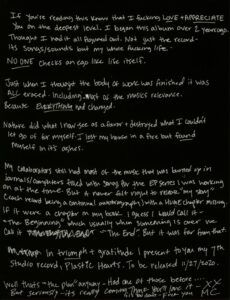 If you're reading this know that I fucking LOVE + APPRECIATE
you on the deepest level. I began this album over 2 years ago.
Thought I had it all figured out. Not just the record
its songs/sounds but my whole fucking life.
NO ONE checks an ego like life itself.
Just when I thought the body of work was finished it was
ALL erased. Including most of the music's relevance.
Because EVERYTHING had changed.
Nature did what I now see as a favor + destroyed what I couldn't
let go of for myself. I lost my house in a fire but found
myself in its ashes.
My collaborators still had most of the music that was burned up in
journals/computers filled with songs for the EP series I was working
on at the time. But it never felt right to release my "story"
(each record being a continual autobiography) with a huge chapter missing.
If it were a chapter in my book I guess I would call it
"The Beginning" which usually when something is over we
call it "The End" But it was far from that.
In triumph + gratitude I present to you my 7th
studio record, Plastic Hearts. To be released 11/27/2020.
Well that's the "plan" anyway - Had one of those before...
But seriously - it's really coming this time
XX
MC